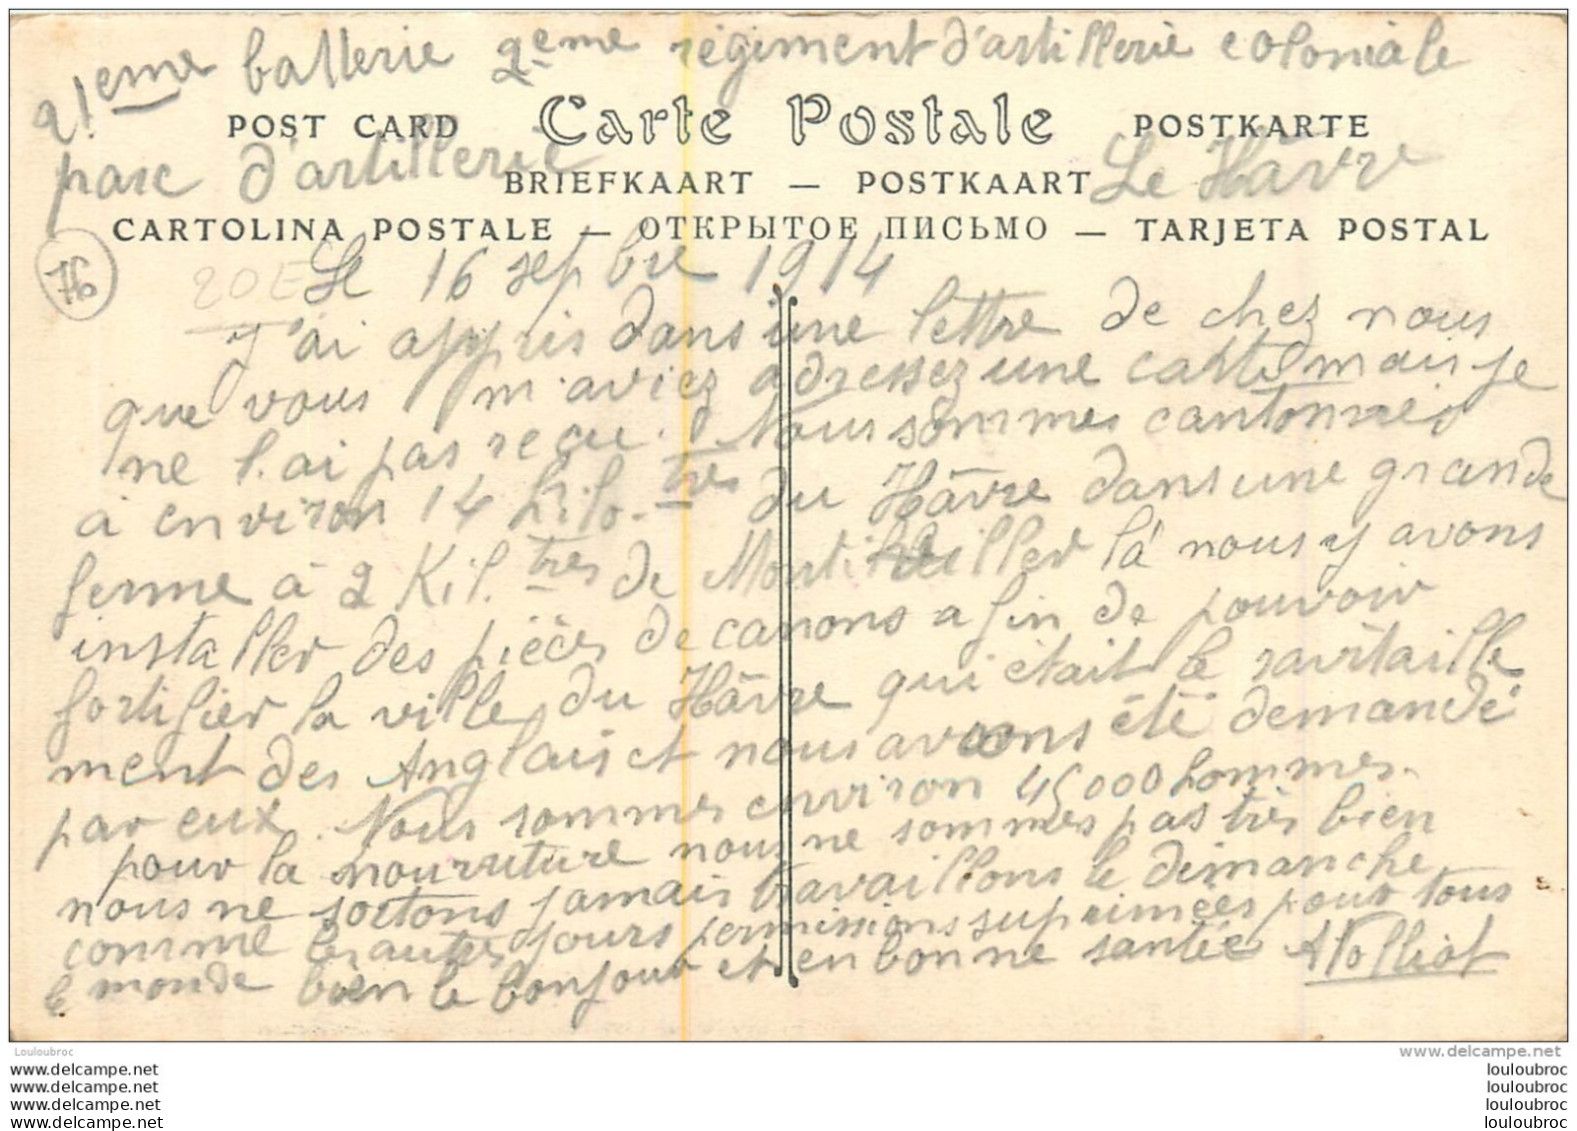 21eme batterie 2eme régiment d'artillerie coloniale
POST CARD Carte Postale POSTKARTE
parc d'artillerie Le Hâvre
BRIEFKAART — POSTKAART
CARTOLINA POSTALE — ОТКРЫТОЕ ПИСЬМО — TARJETA POSTAL
76
20E Le 16 sepbre 1914
J'ai appris dans une lettre de chez nous
que vous m'aviez adressez une carte mais je
ne l'ai pas reçu. Nous sommes cantonnés
à environ 14 kilo-tres du Hâvre dans une grande
ferme à 2 Kil.tres de Montivillier là nous y avons
installer des pièces de canons afin de pouvoir
fortifier la ville du Hâvre qui était le ravitaille
ment des Anglais et nous avons été demandé
par eux. Nous sommes environ 45000 hommes.
pour la nourriture nous ne sommes pas très bien
nous ne sortons jamais travaillons le dimanche
comme les autres jours permissions suprimées pour tous
le monde bien le bonjour et en bonne santée A Volliot
Louloubroc
www.delcampe.net
www.delcampe.net louloubroc
www.delcampe.net louloubroc
www.delcampe.net louloubroc
www.delcampe.net louloubroc